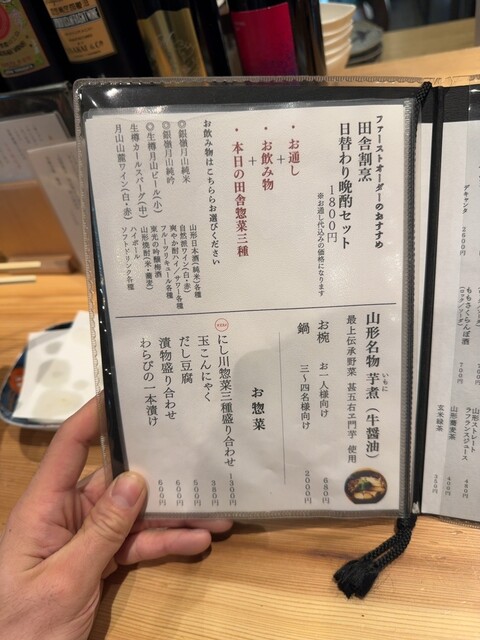 ファーストオーダーのおすすめ
田舎割烹
日替わり晩酌セット
1800円
※お通し代込みの価格になります
・お通し
+
・お飲み物
+
・本日の田舎惣菜三種
お飲み物はこちらからお選びください
◎銀嶺月山純米
◎銀嶺月山純吟
◎生樽月山ビール(小)
生樽カールスバーグ(中)
月山山麓ワイン(白・赤)
山形日本酒(純米)各種
自然派ワイン(白・赤)
爽やか酎ハイ/サワー各種
フルーツリキュール各種
東光の吟醸梅酒
山形焼酎(米・蕎麦)
ハイボール
ソフトドリンク各種
山形名物 芋煮(牛醤油)
いもに
最上伝承野菜 甚五右ヱ門芋 使用
お椀 お一人様向け 680円
鍋 三〜四名様向け 2000円
お惣菜
にし川惣菜三種盛り合わせ 1300円
玉こんにゃく 380円
だし豆腐 500円
漬物盛り合わせ 600円
わらびの一本漬け 600円
デキャンタ 2500円
ももさくらんぼ酒
700円
山形ストレート
ラフランスジュース
山形蕎麦茶
玄米緑茶
350円